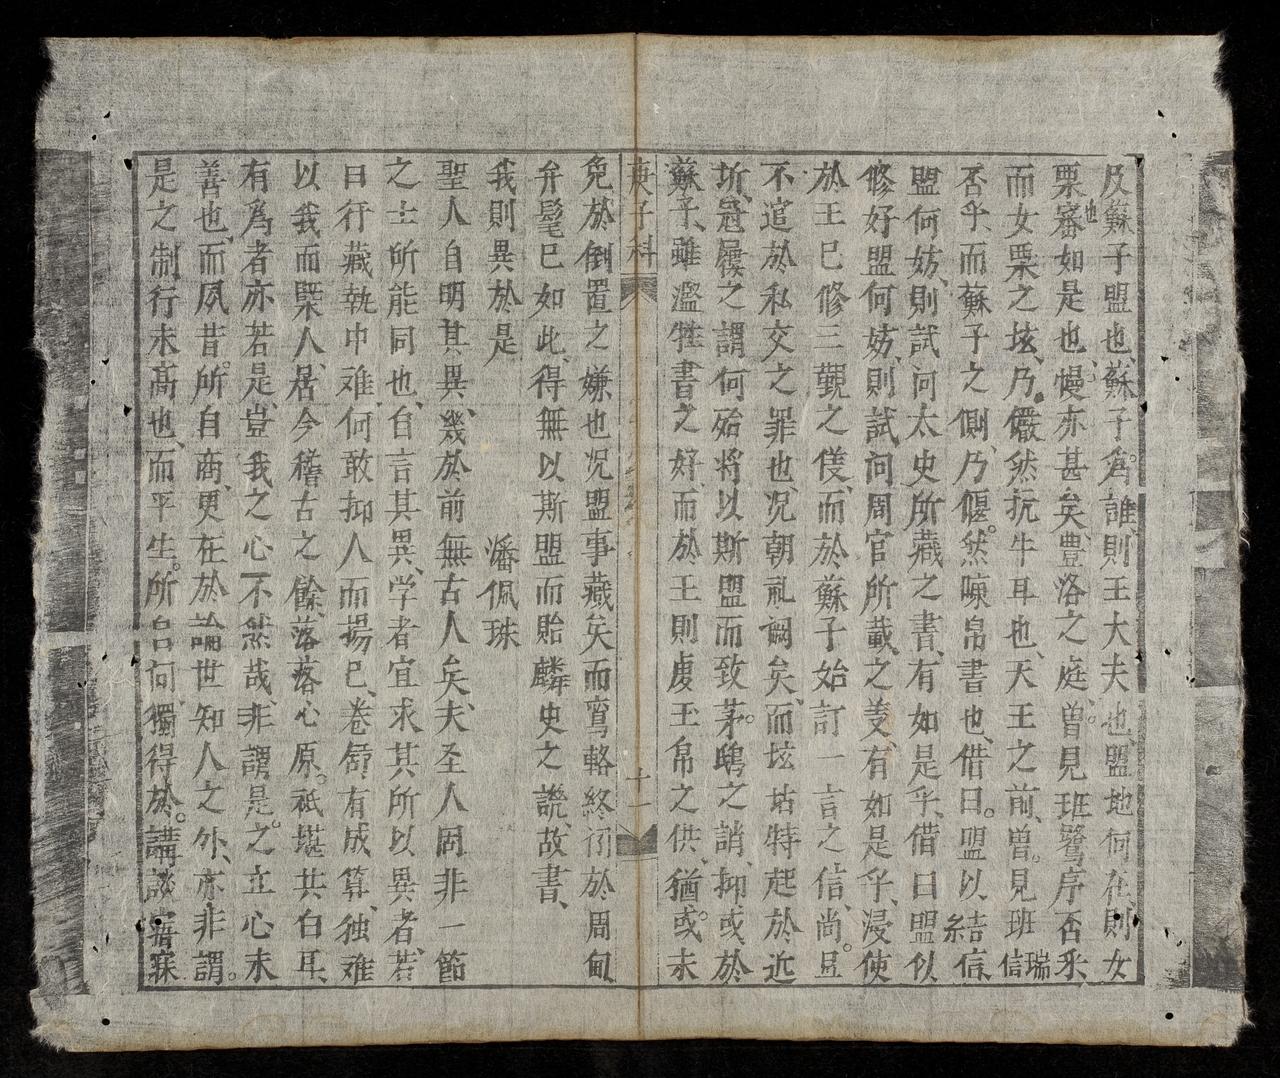 及蘇子盟也、蘇子爲誰、則王大夫也、盟地何在、則女
栗地審如是也、慢亦甚矣、豊洛之庭、曾見班鷺序否乎、
而女栗之垓、乃儼然抗牛耳也、天王之前、曾見班瑞信
否乎、而蘇子之側、乃偃然喢帛書也、借曰盟以結信、
盟何妨、則試问太史所藏之書、有如是乎、借曰盟似
修好盟何妨、則試问周官所載之美、有如是乎、浸使
於王已修三覲之儀、而於蘇子始訂一言之信、尚且
不逭於私交之罪也况朝礼阙矣、而坛坫特起於近
圻、冠履之謂何殆將以斯盟而致茅鴟之誚、抑或於
蘇子、雖濫牲書之好、而於王則虔玉帛之供、猶或未
庚子科 十一
免於倒置之嫌也况盟事藏矣而鸾輅終彻於周甸
弁髦已如此、得無以斯盟而貽麟史之譏、故書、
我則異於是 潘佩珠
聖人自明其異、幾於前無古人矣、夫圣人固非一節
之士所能同也、自言其異、学者宜求其所以異者、若
曰行藏執中难、何敢抑人而揚已、卷舒有成算、独难
以我而槩人、居今稽古之餘、落落心原。祇堪共白耳
有爲者亦若是、豈我之心不然哉、非謂是之立心未
善也、而夙昔所自商、更在於論世知人之外、亦非謂
是之制行未高也、而平生所自问、獨得於講談寤寐